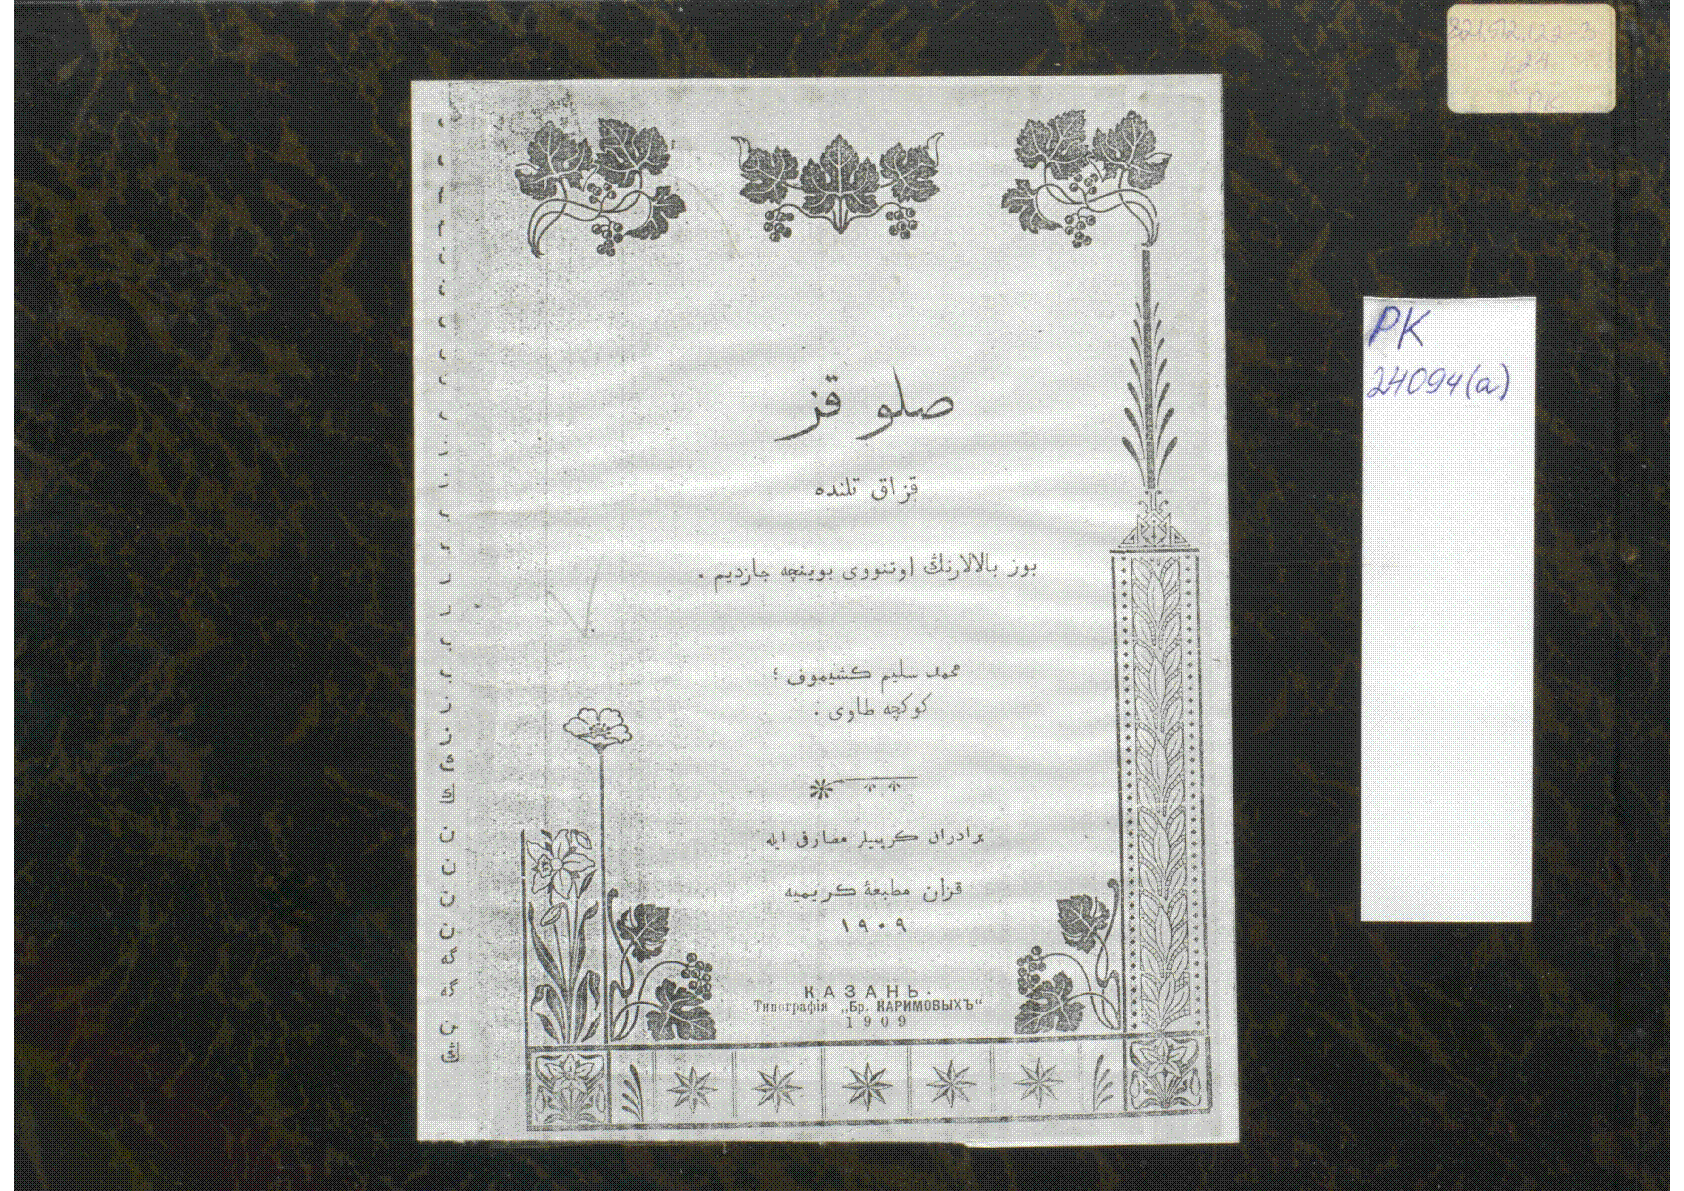 صلو قز
قزاق تلنده
بوز بالالارنڭ اوتنووی بوینچه جازدیم .
محمد سلیم كشیموف ؛
كوكچه طاوی .
برادران كریمیلر مصارفی ایله
قزان مطبعهٔ كریمیه
١٩٠٩
КАЗАНЬ.
Типографія „Бр. КАРИМОВЫХЪ“
1909
РК
24094(а)
К24
РК